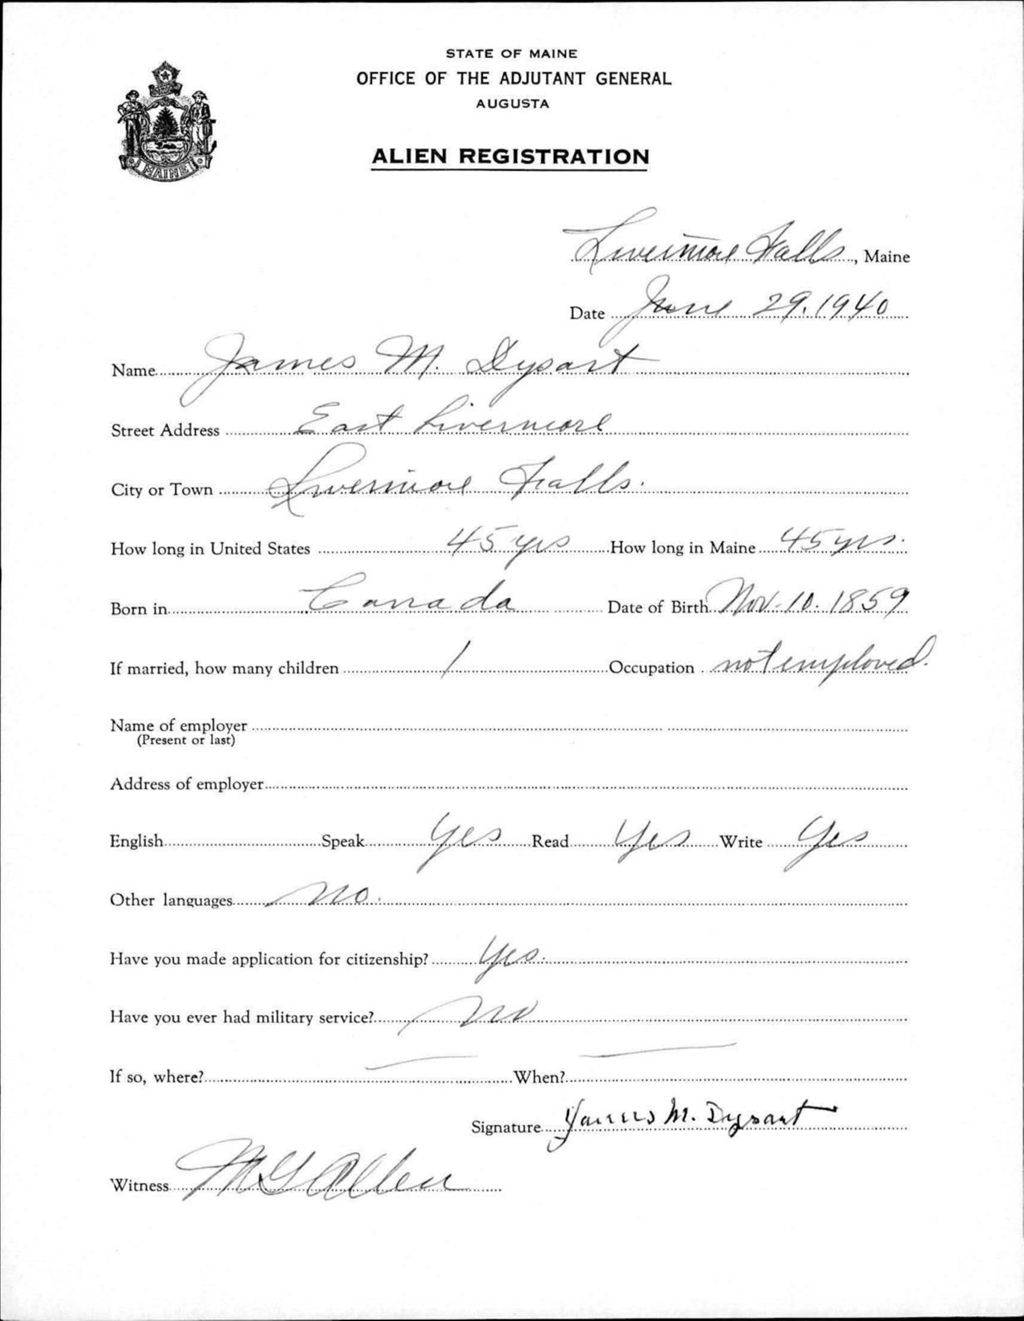 STATE OF MAINE
OFFICE OF THE ADJUTANT GENERAL
AUGUSTA
ALIEN REGISTRATION
MAINE
Livermore Falls, Maine
Date June 29, 1940
Name James M. Dysart
Street Address East Livermore
City or Town Livermore Falls.
How long in United States 45 yrs How long in Maine 45 yrs.
Born in Canada Date of Birth Nov. 10. 1859
If married, how many children 1 Occupation not employed.
Name of employer
(Present or last)
Address of employer
English Speak Yes Read Yes Write Yes
Other languages No.
Have you made application for citizenship? Yes.
Have you ever had military service? No
If so, where? — When? —
Signature James M. Dysart
Witness M G Allen